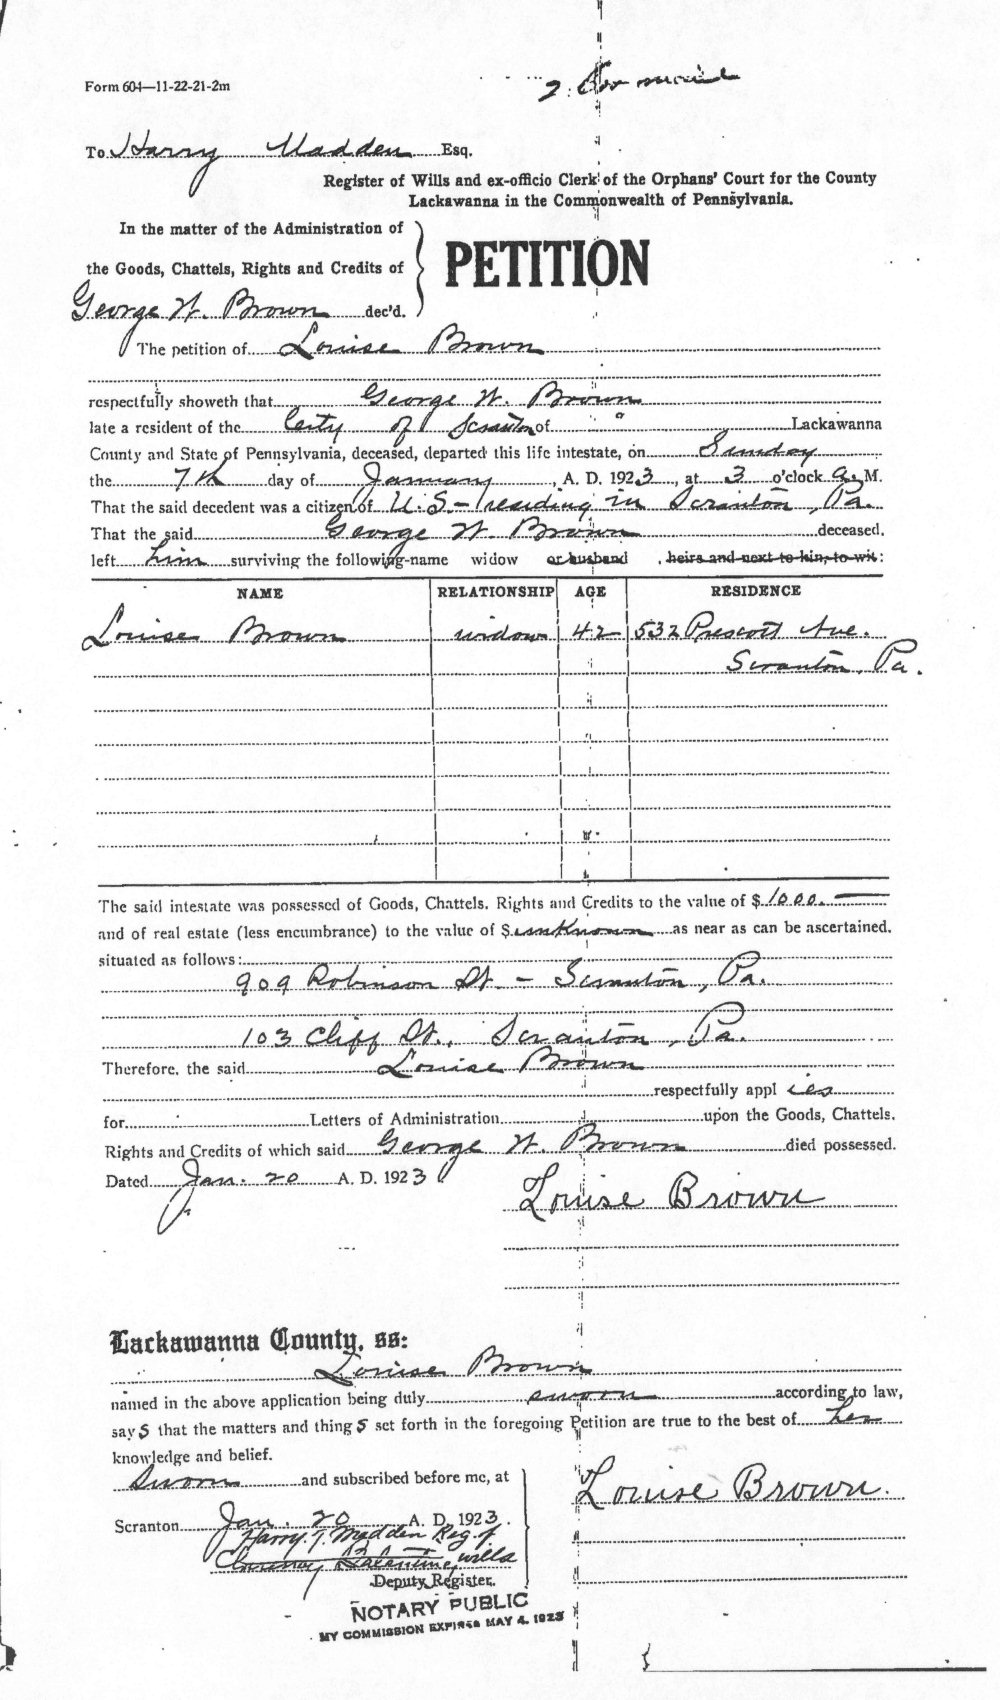 Form 604—11-22-21-2m
To Harry Madden Esq.
Register of Wills and ex-officio Clerk of the Orphans' Court for the County
Lackawanna in the Commonwealth of Pennsylvania.
In the matter of the Administration of
the Goods, Chattels, Rights and Credits of
George W. Brown dec'd.
PETITION
The petition of Louise Brown
respectfully showeth that George W. Brown
late a resident of the City of Scranton of " Lackawanna
County and State of Pennsylvania, deceased, departed this life intestate, on Sunday
the 7th day of January, A. D. 1923, at 3 o'clock a. M.
That the said decedent was a citizen of U.S. - residing in Scranton, Pa.
That the said George W. Brown deceased,
left him surviving the following-name widow or husband , heirs and next to kin, to wit:
NAME RELATIONSHIP AGE RESIDENCE
Louise Brown widow 42 532 Prescott Ave.
Scranton, Pa.
The said intestate was possessed of Goods, Chattels, Rights and Credits to the value of $ 1000.—
and of real estate (less encumbrance) to the value of $ unknown as near as can be ascertained,
situated as follows:
909 Robinson St. - Scranton, Pa.
103 Cliff St., Scranton, Pa.
Therefore, the said Louise Brown
respectfully applies
for Letters of Administration upon the Goods, Chattels,
Rights and Credits of which said George W. Brown died possessed.
Dated Jan. 20 A. D. 1923
Louise Brown
Lackawanna County, ss:
Louise Brown
named in the above application being duly sworn according to law,
says that the matters and things set forth in the foregoing Petition are true to the best of her
knowledge and belief.
Sworn and subscribed before me, at
Scranton Jan. 20 A. D. 1923.
Louise Brown.
Harry T. Madden Reg. of
wills
Deputy Register.
NOTARY PUBLIC
MY COMMISSION EXPIRES MAY 4, 1923